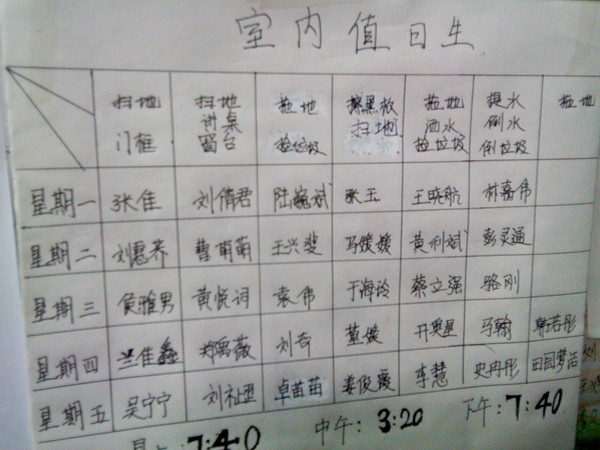 室内值日生
扫地 扫地 拖地 擦黑板 拖地 提水 拖地
讲桌 扫地 洒水 倒水
门框 窗台 捡垃圾 捡垃圾 倒垃圾
星期一 张佳 刘倩君 陆婉斌 张玉 王晓航 林嘉伟
星期二 刘惠养 曹萌萌 王兴斐 马媛媛 黄俐斌 彭灵通
星期三 侯雅男 黄悦词 袁伟 于海玲 蔡立强 骆刚
星期四 兰佳鑫 郑禹薇 刘奇 董媛 马翰
星期五 吴宁宁 刘祉 卓苗苗 姜俊霞 李慧 史冉彤 田园梦洁
7:40 中午: 3:20 下午: 7:40